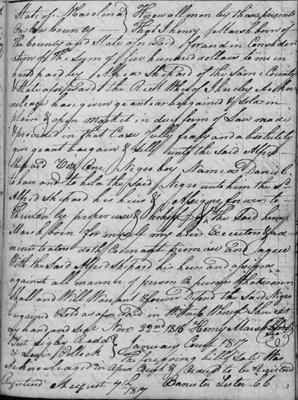 State of N Carolina Know all men by these presents
County That I Henry Marshborn of
the County and State aforesaid for and in Consider
ation of the Sum of five hundred dollars to me in
hand paid by Alfred Shepard of the Same County
& State aforesaid the Receipt Whereof I hereby Acknow
ledge have given granted bargained & Sold in
plain & open market in due form of Law made
& provided in that Case fully freely and absolutely
give grant bargain & Sell unto the Said Alfred
Shepard One Negro boy Named Daniel
to have and to hold the Said Negro unto him the Sd
Alfred Shepard his heirs & Assigns forever to
And the Said Henry
Marshborn for myself my heirs Executors & ad
ministrators doth Covenant promise and agree
With the Said Alfred Shepard his heirs and assigns
against all manner of person or persons Whatsoever
Shall and Will Warrant & forever defend the Said Negro
bargained & Sold as aforesaid in Witness Whereof I hereby
my hand and Seal Novr 22nd 1816 Henry Marshborn
Test January Court 1817
Pollock The foregoing bill of Sale Was
Acknowledged in Open Court & Ordered to be Registered
Registered August 7th 1817 Banister Lester CC